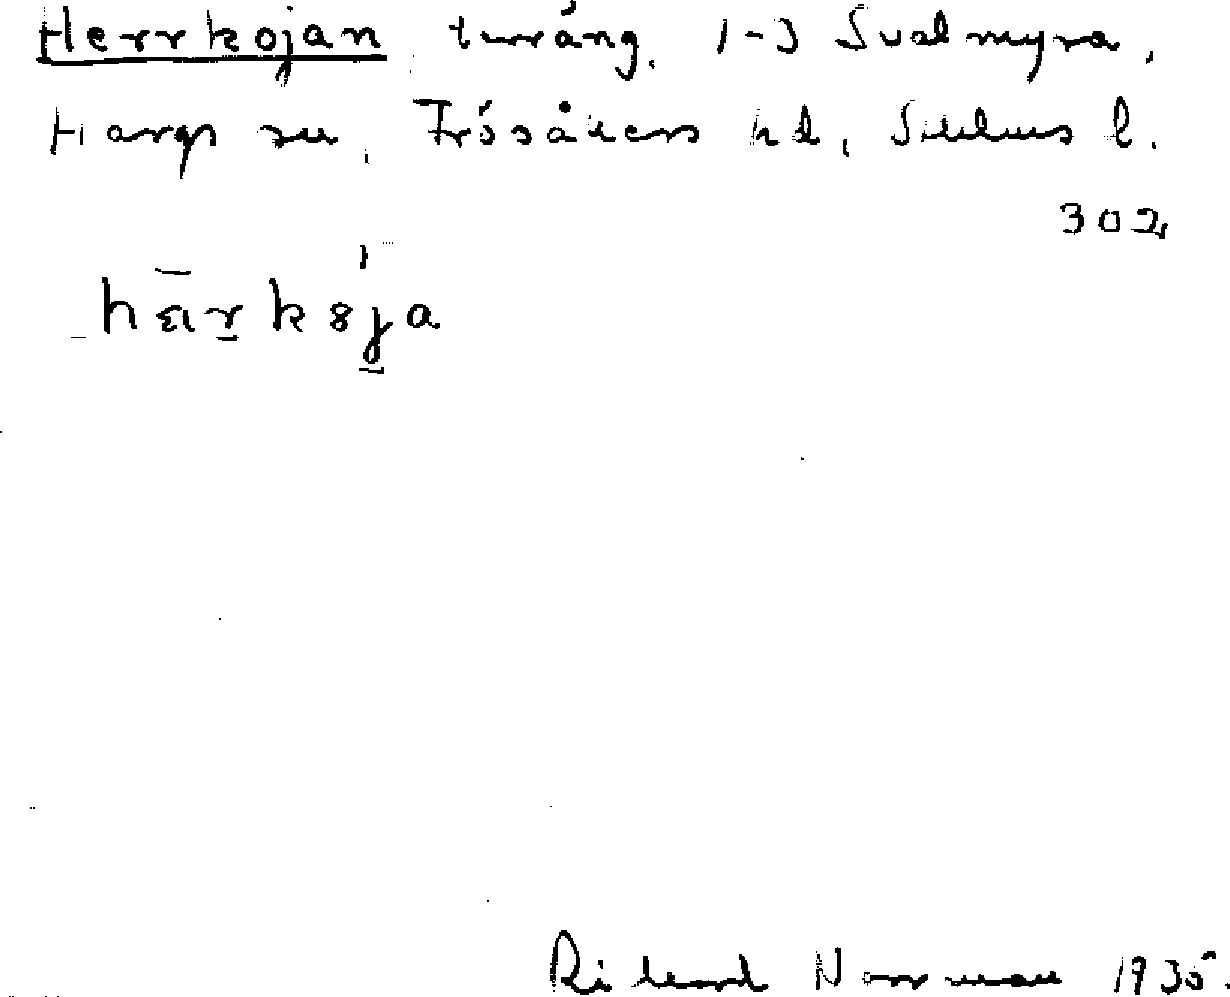 Herrkojan turäng. 1-3 Svalmyra,
Hargs sn, Frösåkers hd, Sthlms l.
302
härkoja
Rikard Norrman 1935.